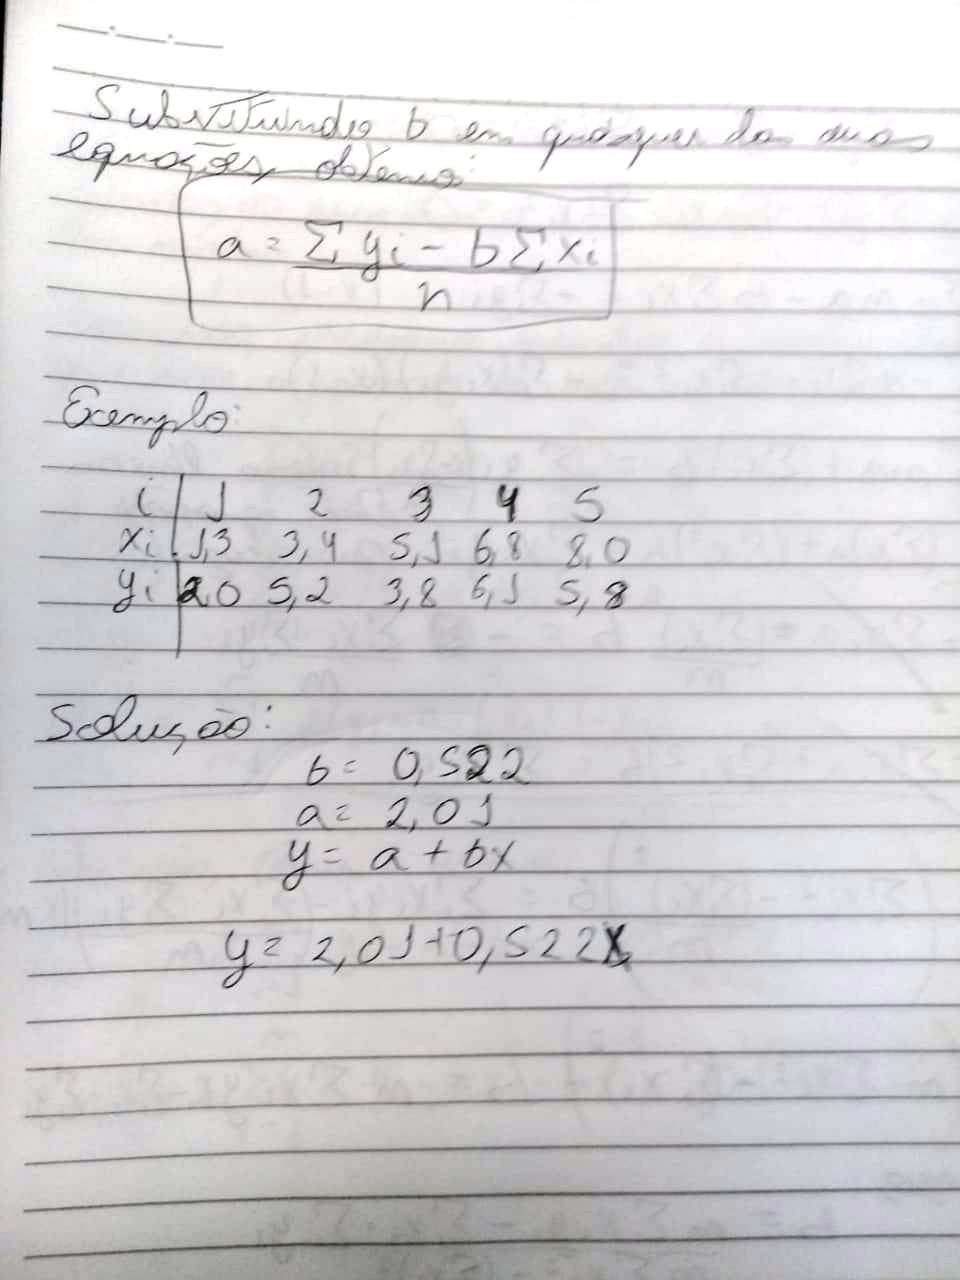 Substituindo b em quaisquer das duas
equações, obtemos:
a = Σ yi - b Σ xi
n
Exemplo:
i 1 2 3 4 5
xi 1,3 3,4 5,1 6,8 8,0
yi 2,0 5,2 3,8 6,1 5,8
Solução:
b = 0,522
a = 2,01
y = a + bx
y = 2,01+0,522x